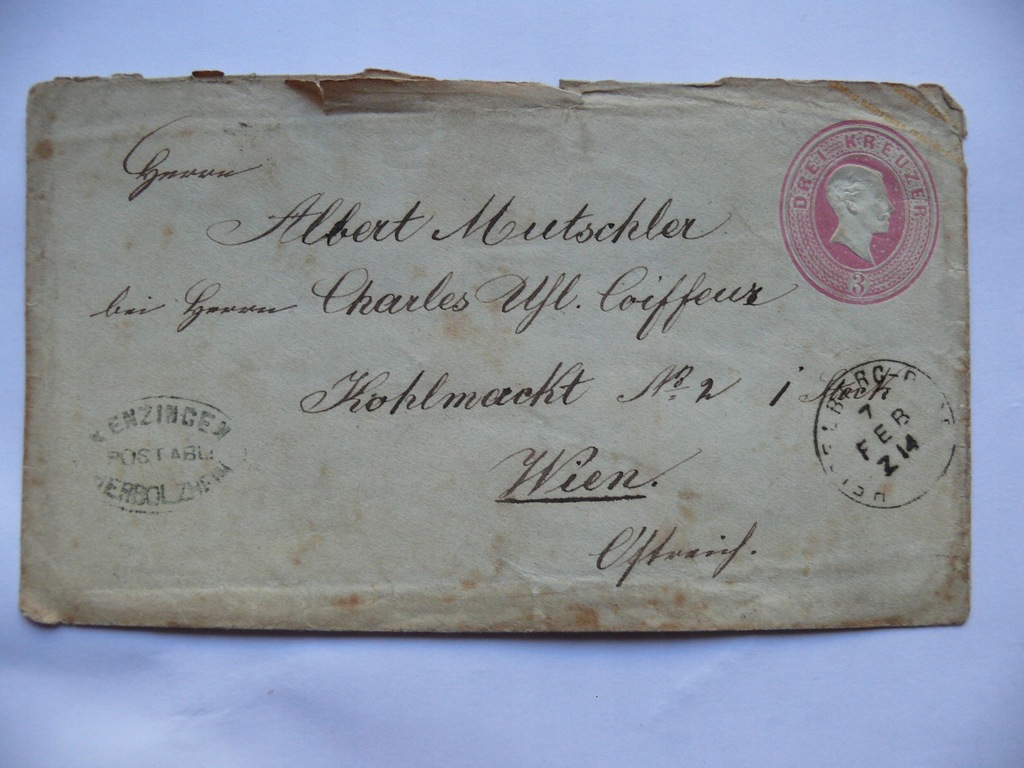 Herrn
Albert Mutschler
bei Herrn Charles Uhl. Coiffeur
Kohlmarkt No. 2 1 Stock
Wien.
Östreich.
DREI KREUZER
3
KENZINGEN
POSTABL.
HERBOLZHEIM
7
FEB
2 14